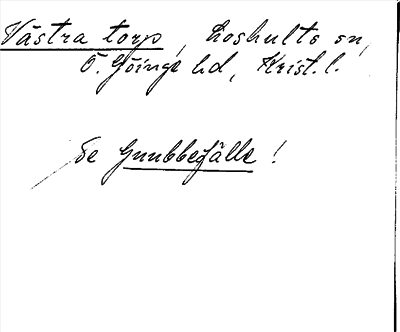 Västra torp, Loshults sn,
Ö. Göinge hd, Krist. l.
Se Gnubbefälle!